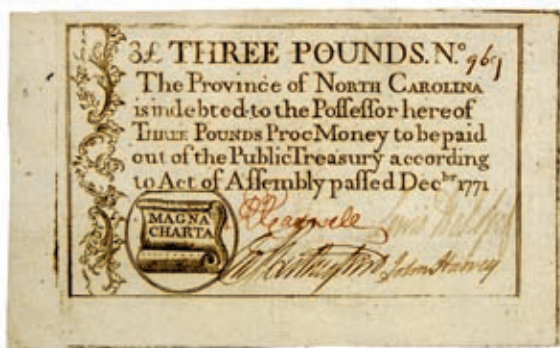 3£ THREE POUNDS. No. 961
The Province of NORTH CAROLINA
is indebted to the Poſſeſſor hereof
THREE POUNDS Proc Money to be paid
out of the Public Treasury according
to Act of Aſſembly paſſed Decbr 1771
MAGNA
CHARTA
John Harvey